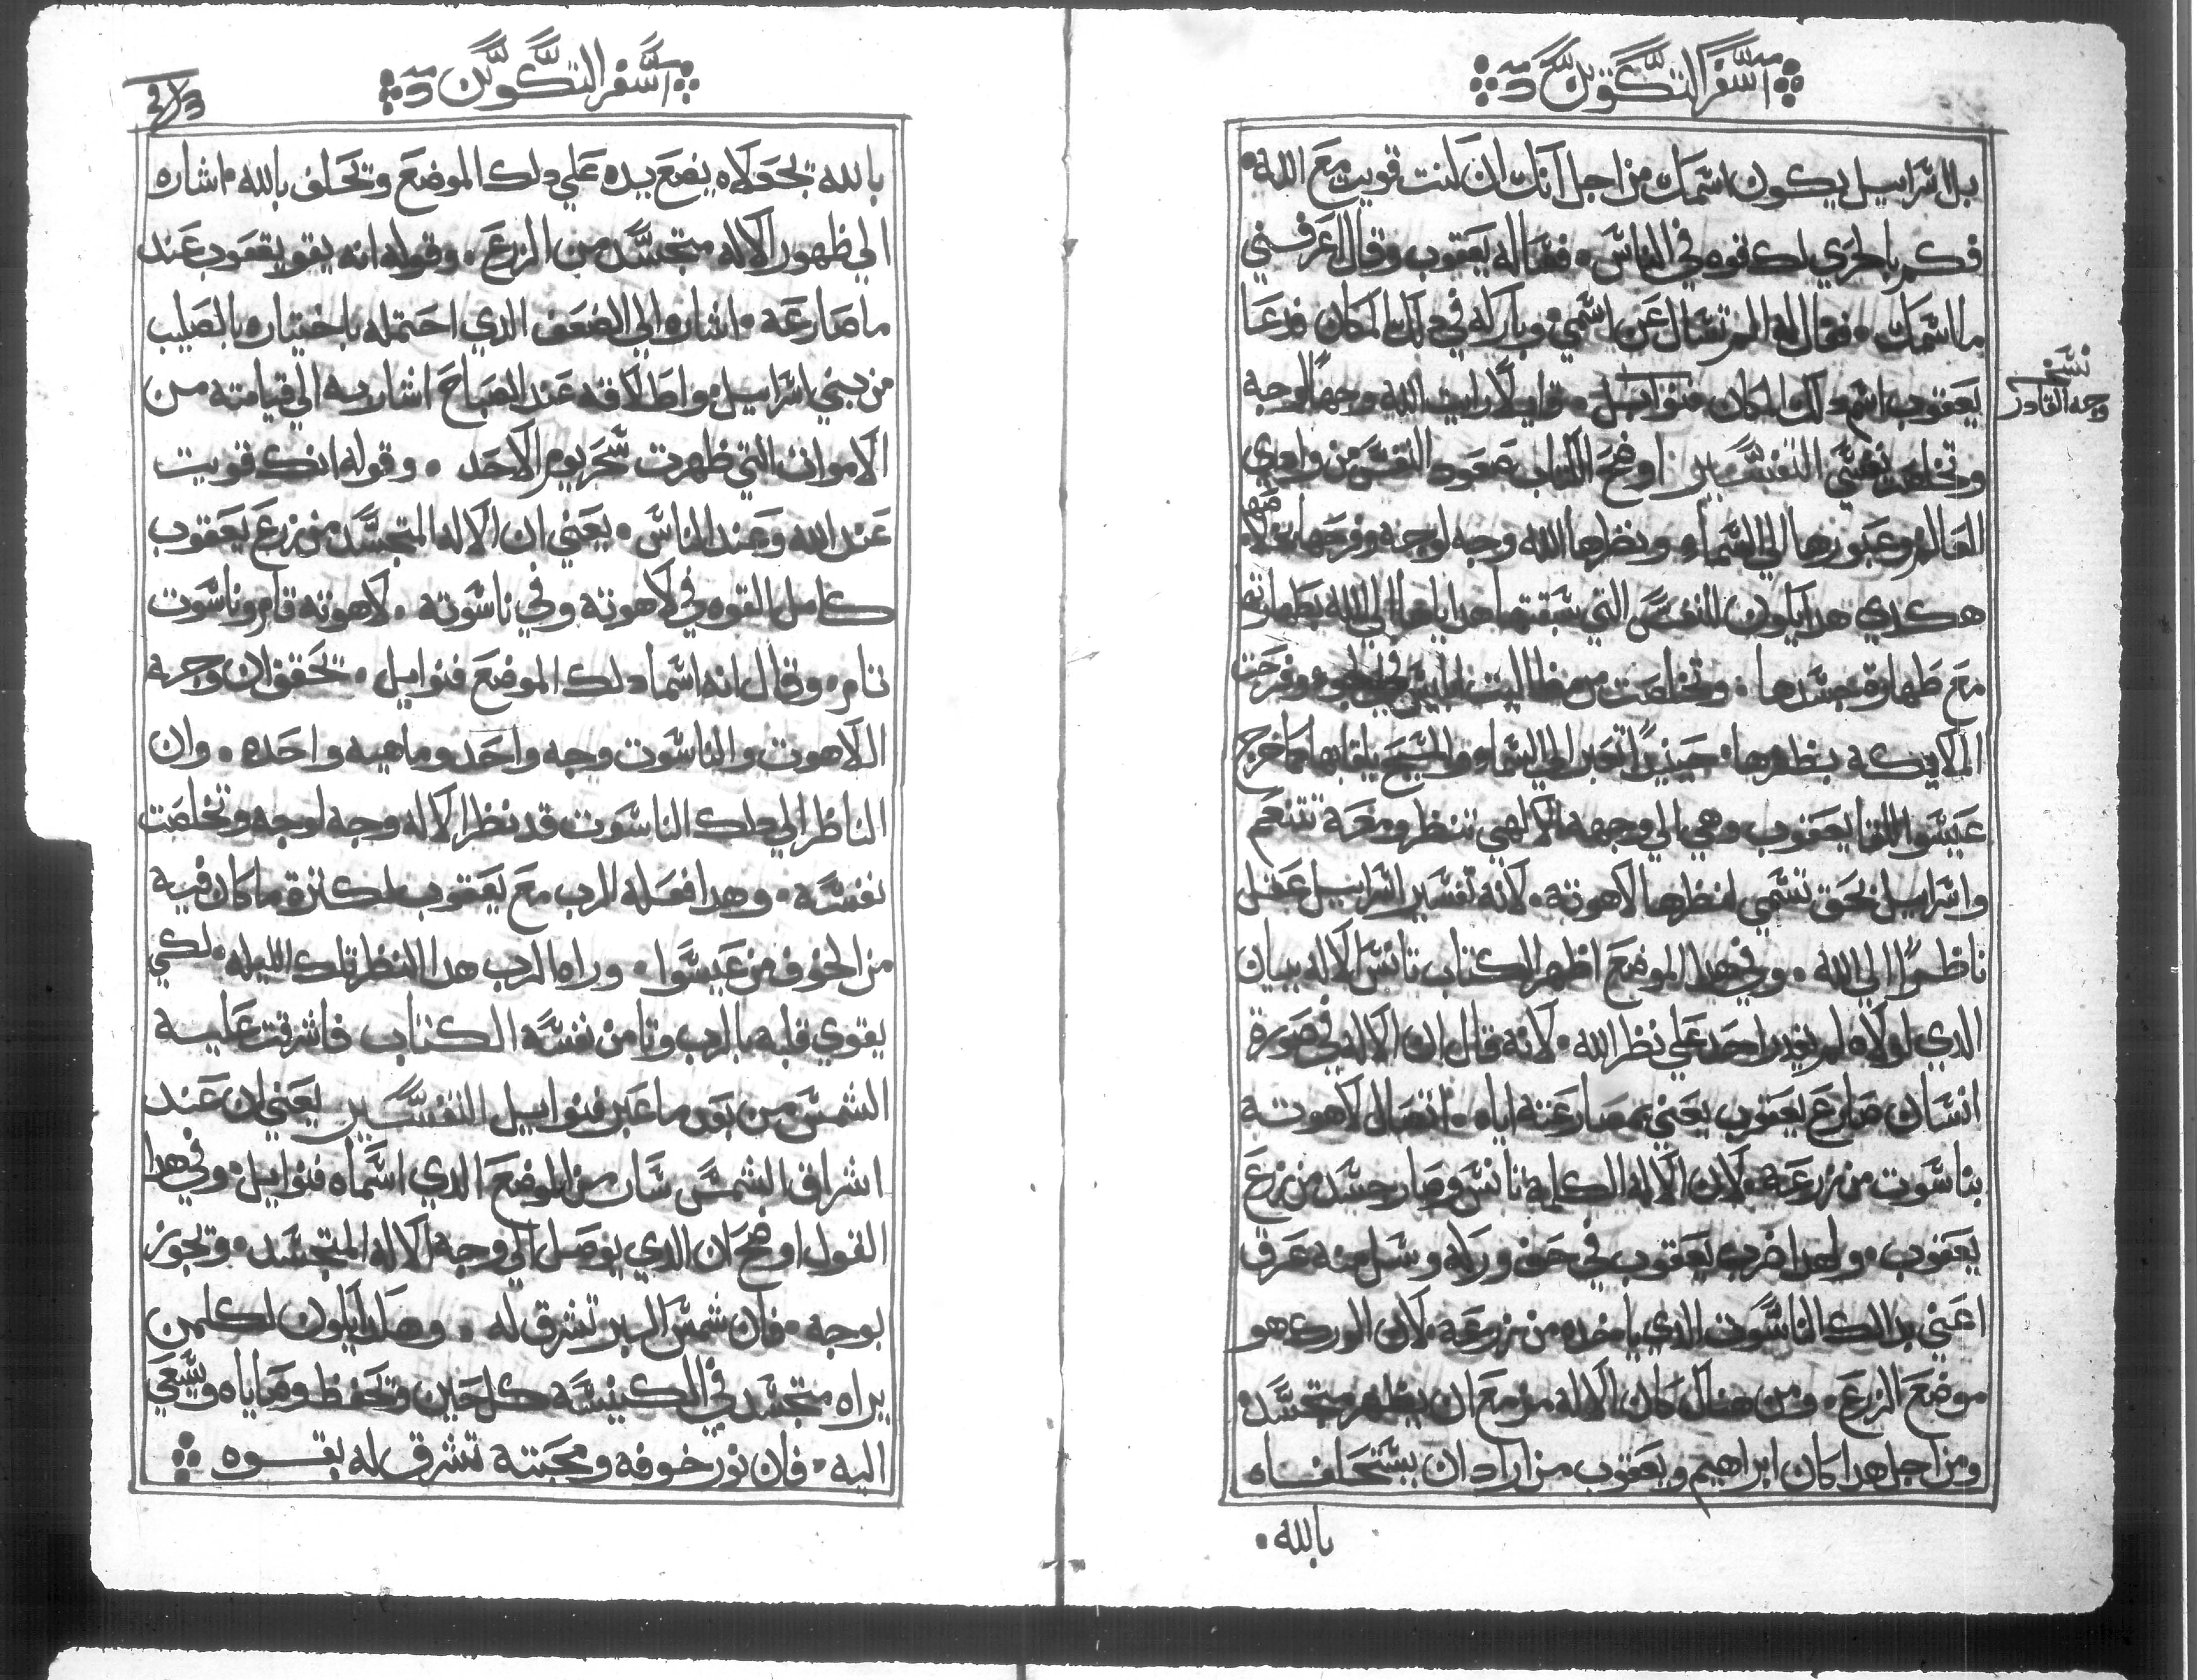 سفر التكوين
بل اسراييل يكون اسمك من اجل انك ان كنت قويت مع الله
فكم بالحري لك قوه في الناس فساله يعقوب وقال عرفني
ما اسمك فقال له لم تسال عن اسمي وباركه في دلك المكان فدعا
يعقوب اسم دلك المكان فنواييل قايلا رايت الله وجهًا لوجه
نسخه
وجه القادر
وتخلصت نفسي التفسير اوضح الكتاب صعود النفس من وادي
العالم وعبورها الي السما ونظرها الله وجه لوجه وفرحها
هكدي هدا يكون النفس التي سبقتها هداياها الي الله بطهارتها
مع طهارة جسدها وتخلصت من مطاليب ابليس في الجو وفرحت
الملايكه بظفرها حينيدًا تعبر الي السماء والمسيح يلقاها كما خرج
عيسوا للقا يعقوب وهي الي وجهه الالهي تنظر ومعه تتنعم
واسراييل بحق تسمي لنظرها لاهوته لانه تفسير اسراييل عقل
ناظرًا الي الله وفي هدا الموضع اظهر الكتاب تانس الاله ببيان
الدي لولاه لم يقدر احد علي نظر الله لانه قال ان الاله في صورة
انسان صارع يعقوب يعني بمصارعته اياه اتصال لاهوته
بناسوت من زرعه لان الاله الكلمه تانس وصار جسد من زرع
يعقوب ولهدا ضرب يعقوب في حق وركه وسل منه عرق
اعني بدالك الناسوت الدي ياخده من زرعه لان الورك هو
موضع الزرع ومن هناك كان الاله مزمع ان يظهر متجسد
ومن اجل هدا كان ابراهيم ويعقوب من اراد ان يستحلفاه
بالله
سفر التكوين
بالله تحقولاه يضع يده علي دلك الموضع وتحلف بالله اشاره
الي ظهور الاله متجسد من الزرع وقوله انه يقو يعقوب عند
ما صارعه اشاره الي الضعف الدي احتمله باختياره بالصليب
من بني اسراييل واطلاقه عند الصباح اشار به الي قيامته من
الاموات التي ظهرت سحر يوم الاحد وقوله انك قويت
عند الله وعند الناس يعني ان الاله المتجسد من زرع يعقوب
كامل القوه في لاهوته وفي ناسوته لاهوته تام وناسوت
تام وقال انه اسما دلك الموضع فنواييل تحقق ان وجه
اللاهوت والناسوت وجه واحد وماهيه واحده وان
الناظر الي دلك الناسوت قد نظر الاله وجه لوجه وتخلصت
نفسه وهدا فعله الرب مع يعقوب لكترة ما كان فيه
من الخوف من عيسوا وراه الرب هدا النظر تلك الليله لكي
يقوي قلبه بالرب وتامن نفسه الكتاب فاشرقت عليه
الشمس من بعد ما عبر فنواييل التفسير يعني ان عند
اشراق الشمس سار من الموضع الدي اسماه فنواييل وفي هدا
القول اوضح ان الدي يوصل الي وجه الاله المتجسد وتجوز
بوجه فان شمس البر تشرق له وهدا يكون لكلمن
يراه متجسد في الكنيسه كل حين وتحفظ وصاياه ويسعي
اليه فان نور خوفه ومحبته تشرق له بقوه